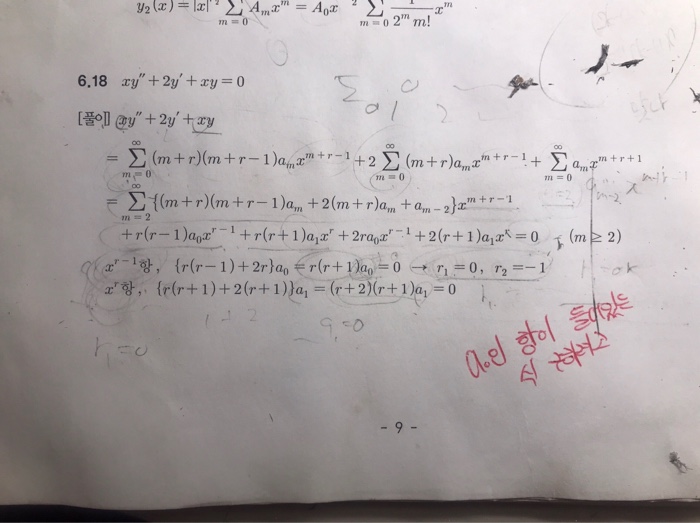 y₂(x) = |x|^{-2} Σ_{m=0} A_m x^m = A₀x^{-2} Σ_{m=0} 1/(2^m m!) x^m
6.18 xy″+2y′+xy=0
[풀이] xy″+2y′+xy
= Σ_{m=0}^{∞} (m+r)(m+r-1)a_m x^{m+r-1} + 2 Σ_{m=0}^{∞} (m+r)a_m x^{m+r-1} + Σ_{m=0}^{∞} a_m x^{m+r+1}
= Σ_{m=2}^{∞} {(m+r)(m+r-1)a_m + 2(m+r)a_m + a_{m-2}}x^{m+r-1}
+r(r-1)a₀x^{r-1} + r(r+1)a₁x^r + 2ra₀x^{r-1} + 2(r+1)a₁x^r = 0 (m ≥ 2)
x^{r-1}항, {r(r-1)+2r}a₀ = r(r+1)a₀ = 0 → r₁=0, r₂=-1
x^r항, {r(r+1)+2(r+1)}a₁ = (r+2)(r+1)a₁ = 0
a₁=0
r₁=0
a₀인 항이 들어있는
식 구하려고
- 9 -